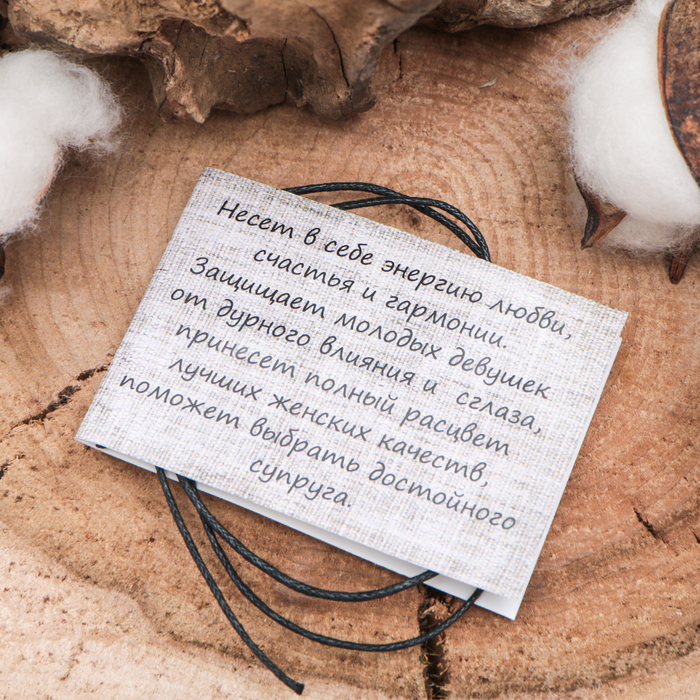 Несет в себе энергию любви,
счастья и гармонии.
Защищает молодых девушек
от дурного влияния и сглаза,
принесет полный расцвет
лучших женских качеств,
поможет выбрать достойного
супруга.